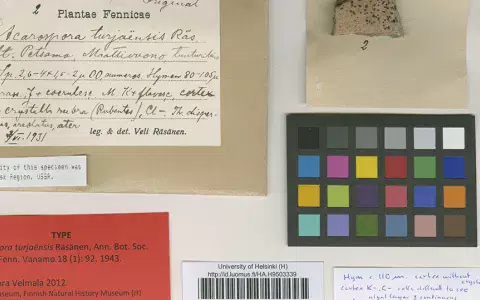 Original
2 Plantae Fennicae
Acarospora turjaënsis Räs
lt. Petsamo, Maattivuono, tunturilla
Sp. 2,5-4×1,5-2 µ, 00, numeros. Hymen 80-105µ
J+ coerulesc. M. K+ flavesc, cortex
crystalli rubra (Rubentes), Cl-. Th. disper-
areolatus, ater
1931 leg. & det. Veli Räsänen.
2
ity of this specimen was
Region, USSR.
TYPE
ora turjaënsis Räsänen, Ann. Bot. Soc.
Fenn. Vanamo 18 (1): 92. 1943.
ara Velmala 2012
useum, Finnish Natural History Museum (H)
University of Helsinki (H)
http://id.luomus.fi/HA.H9503339
Hym c 110 µm. cortex without
crystals
cortex K-, C- cells difficult to see
algal layer ± continuous